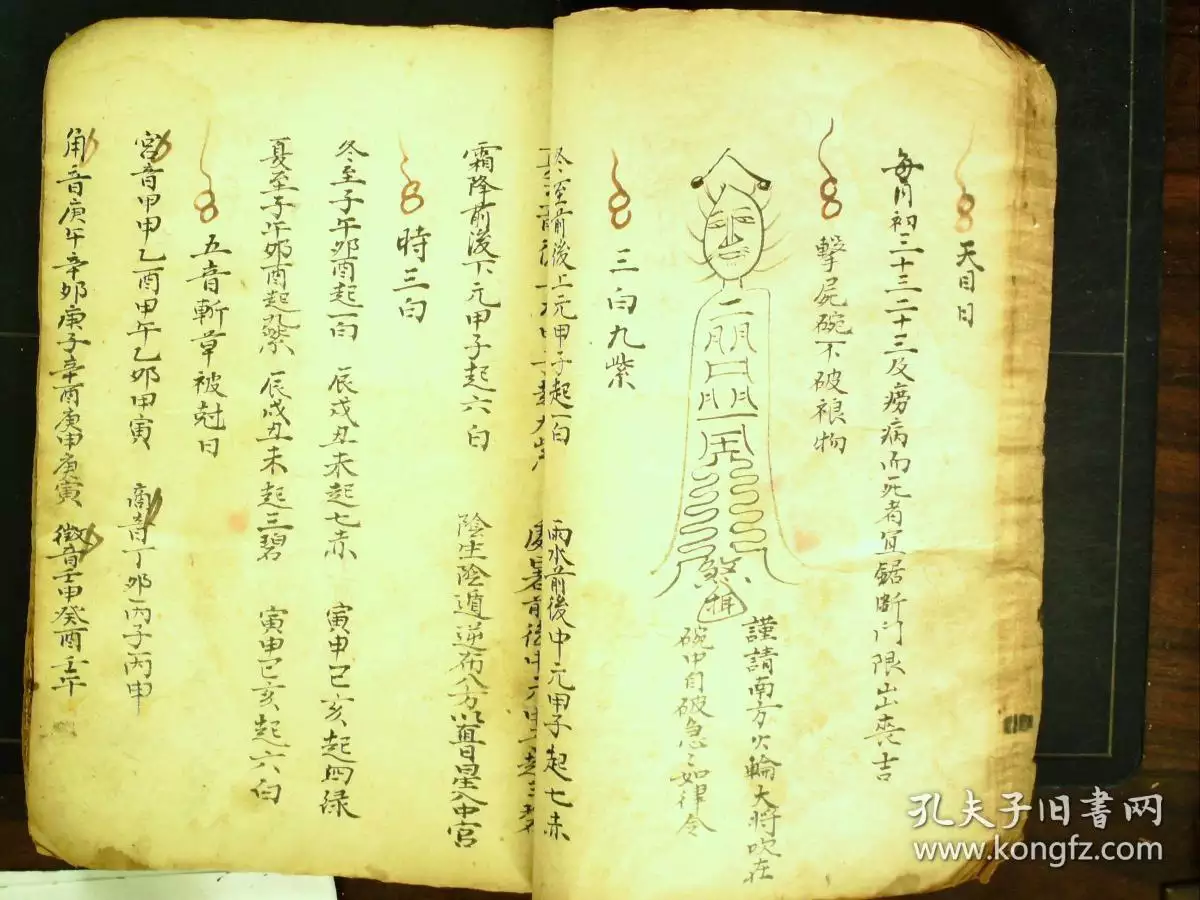 天目日
每月初三十三二十三及癆病而死者宜鋸断门限出喪吉
擊屍碗不破禳物
謹請南方火輪大将吹在
碗中自破急〻如律令
煞
三白九紫
冬至前後上元甲子起一白 雨水前後中元甲子起七赤
處暑前後中元甲子起三碧
霜降前後下元甲子起六白 陰生陰遁逆布八方以直日星入中宮
時三白
冬至子午卯酉起一白 辰戌丑未起七赤 寅申巳亥起四绿
夏至子午卯酉起九紫 辰戌丑未起三碧 寅申巳亥起六白
五音斬草被尅日
宮音甲申乙酉甲午乙卯甲寅 商音丁卯丙子丙申
角音庚午辛卯庚子辛酉庚申庚寅 徵音壬申癸酉壬午
孔夫子旧書网
www.kongfz.com